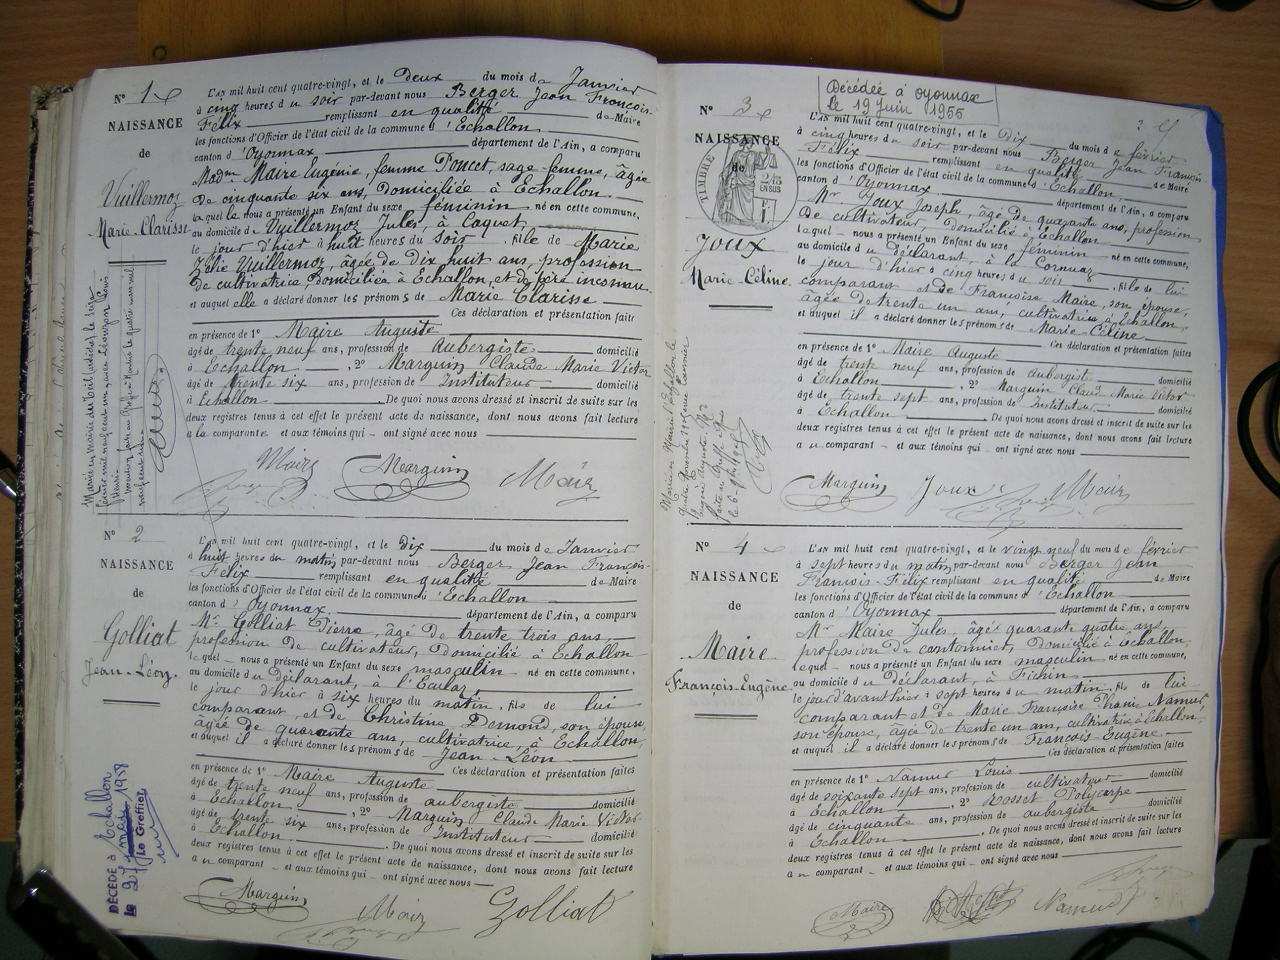 N° 1
NAISSANCE
de
Vuillermoz
Marie-Clarisse
L'an mil huit cent quatre-vingt, et le Deux du mois de Janvier
à cinq heures du soir par-devant nous Berger Jean François-
Félix remplissant en qualité de Maire
les fonctions d'Officier de l'état civil de la commune d'Echallon
canton d'Oyonnax département de l'Ain, a comparu
Madme Maire Eugénie, femme Poncet, sage-femme, âgée
de cinquante six ans, Domiciliée à Echallon
laquelle nous a présenté un Enfant du sexe féminin né en cette commune,
au domicile de Vuillermoz Jules, à Caquet,
le jour d'hier à huit heures du Soir fille de Marie
Zélie Vuillermoz, âgée de Dix huit ans, profession
de cultivatrice, Domiciliée à Echallon, et de père inconnu
et auquel elle a déclaré donner les prénoms de Marie Clarisse
Ces déclaration et présentation faites
en présence de 1° Maire Auguste
âgé de trente neuf ans, profession de Aubergiste domicilié
à Echallon, 2° Marguin Claude Marie Victor
âgé de trente six ans, profession de Instituteur domicilié
à Echallon. De quoi nous avons dressé et inscrit de suite sur les
deux registres tenus à cet effet le présent acte de naissance, dont nous avons fait lecture
à la comparante et aux témoins qui ont signé avec nous
Marguin Maire
N° 2
NAISSANCE
de
Golliat
Jean-Léon
L'an mil huit cent quatre-vingt, et le dix du mois de Janvier
à huit heures du matin par-devant nous Berger Jean François-
Félix remplissant en qualité de Maire
les fonctions d'Officier de l'état civil de la commune d'Echallon
canton d'Oyonnax département de l'Ain, a comparu
Mr Golliat Pierre, âgé de trente trois ans,
profession de cultivateur, Domicilié à Echallon
lequel nous a présenté un Enfant du sexe masculin né en cette commune,
au domicile du Déclarant, à l'
le jour d'hier à six heures du matin, fils de lui
comparant, et de Christine Demond, son épouse,
âgée de quarante ans, cultivatrice, à Echallon
et auquel il a déclaré donner les prénoms de Jean-Léon
Ces déclaration et présentation faites
en présence de 1° Maire Auguste
âgé de trente neuf ans, profession de aubergiste domicilié
à Echallon, 2° Marguin Claude Marie Victor
âgé de trente six ans, profession de Instituteur domicilié
à Echallon. De quoi nous avons dressé et inscrit de suite sur les
deux registres tenus à cet effet le présent acte de naissance, dont nous avons fait lecture
au comparant et aux témoins qui ont signé avec nous
Marguin Maire Golliat
DÉCÉDÉ à Echallon
le 27 1958
Le Greffier
Décédée à Oyonnax
le 19 Juin 1956
N° 3
NAISSANCE
de
TIMBRE
Joux
Marie-Céline
L'an mil huit cent quatre-vingt, et le Dix du mois de février
à cinq heures du soir par-devant nous Berger Jean François
Félix remplissant en qualité de Maire
les fonctions d'Officier de l'état civil de la commune d'Echallon
canton d'Oyonnax département de l'Ain, a comparu
Mr Joux Joseph, âgé de quarante ans, profession
De cultivateur, Domicilié à Echallon
lequel nous a présenté un Enfant du sexe féminin né en cette commune,
au domicile du déclarant, à la
le jour d'hier à cinq heures du soir, fille de lui
comparant et de Françoise Maire, son épouse,
âgée de trente un ans, cultivatrice à Echallon,
et auquel il a déclaré donner les prénoms de Marie Céline
Ces déclaration et présentation faites
en présence de 1° Maire Auguste
âgé de trente neuf ans, profession de aubergiste domicilié
à Echallon, 2° Marguin Claude Marie Victor
âgé de trente sept ans, profession de Instituteur domicilié
à Echallon. De quoi nous avons dressé et inscrit de suite sur les
deux registres tenus à cet effet le présent acte de naissance, dont nous avons fait lecture
au comparant et aux témoins qui ont signé avec nous
Marguin Joux Maire
N° 4
NAISSANCE
de
Maire
François-Eugène
L'an mil huit cent quatre-vingt, et le vingt neuf du mois de février
à sept heures du matin par-devant nous Berger Jean
François-Félix remplissant en qualité de Maire
les fonctions d'Officier de l'état civil de la commune d'Echallon
canton d'Oyonnax département de l'Ain, a comparu
Mr Maire Jules, âgé quarante quatre ans,
profession de cantonnier, Domicilié à Echallon,
lequel nous a présenté un Enfant du sexe masculin né en cette commune,
au domicile du Déclarant, à
le jour d'avant hier à sept heures du matin, fils de lui
comparant et de Marie Françoise Namur,
son épouse, âgée de trente un ans, cultivatrice à Echallon,
et auquel il a déclaré donner les prénoms de François-Eugène
Ces déclaration et présentation faites
en présence de 1° Namur Louis
âgé de soixante sept ans, profession de cultivateur domicilié
à Echallon, 2° Rosset Polycarpe
âgé de cinquante ans, profession de aubergiste domicilié
à Echallon. De quoi nous avons dressé et inscrit de suite sur les
deux registres tenus à cet effet le présent acte de naissance, dont nous avons fait lecture
au comparant et aux témoins qui ont signé avec nous
Maire Namur